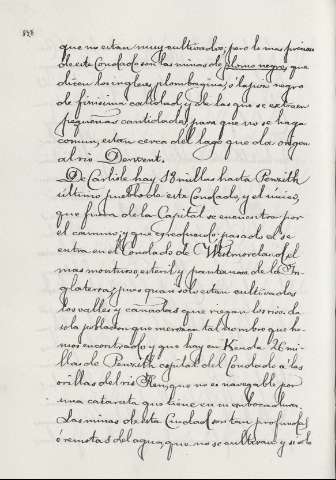 que no estan muy cultivados; pero lo mas precioso
de este Condado son las minas de plomo negro, que
dicen los ingleses plombagina, ó lapiz negro
de finisima calidad, y de las que se extraen
pequeñas cantidades para que no se haga
comun, estan cerca del lago que da origen
al rio Derwent.
De Carlisle hay 18 millas hasta Penrith
ultimo pueblo de este Condado, y el unico,
que fuera de la Capital se encuentra por
el camino, y que es pequeño: pasado el se
entra en el Condado de Westmoreland, el
mas montuoso, esteril y pantanoso de la In-
glaterra; pues quan solo estan cultivados
los valles y cañadas que riegan los rios. La
sola poblacion que merezca tal nombre que he-
mos encontrado y que hay en Kendal 26 mi-
llas de Penrith capital del Condado a las
orillas del rio Ken, que no es navegable por
una catarata que tiene en su embocadura.
Las minas de esta Ciudad son tan profundas
é remotas del agua, que no se cultivan y si solo